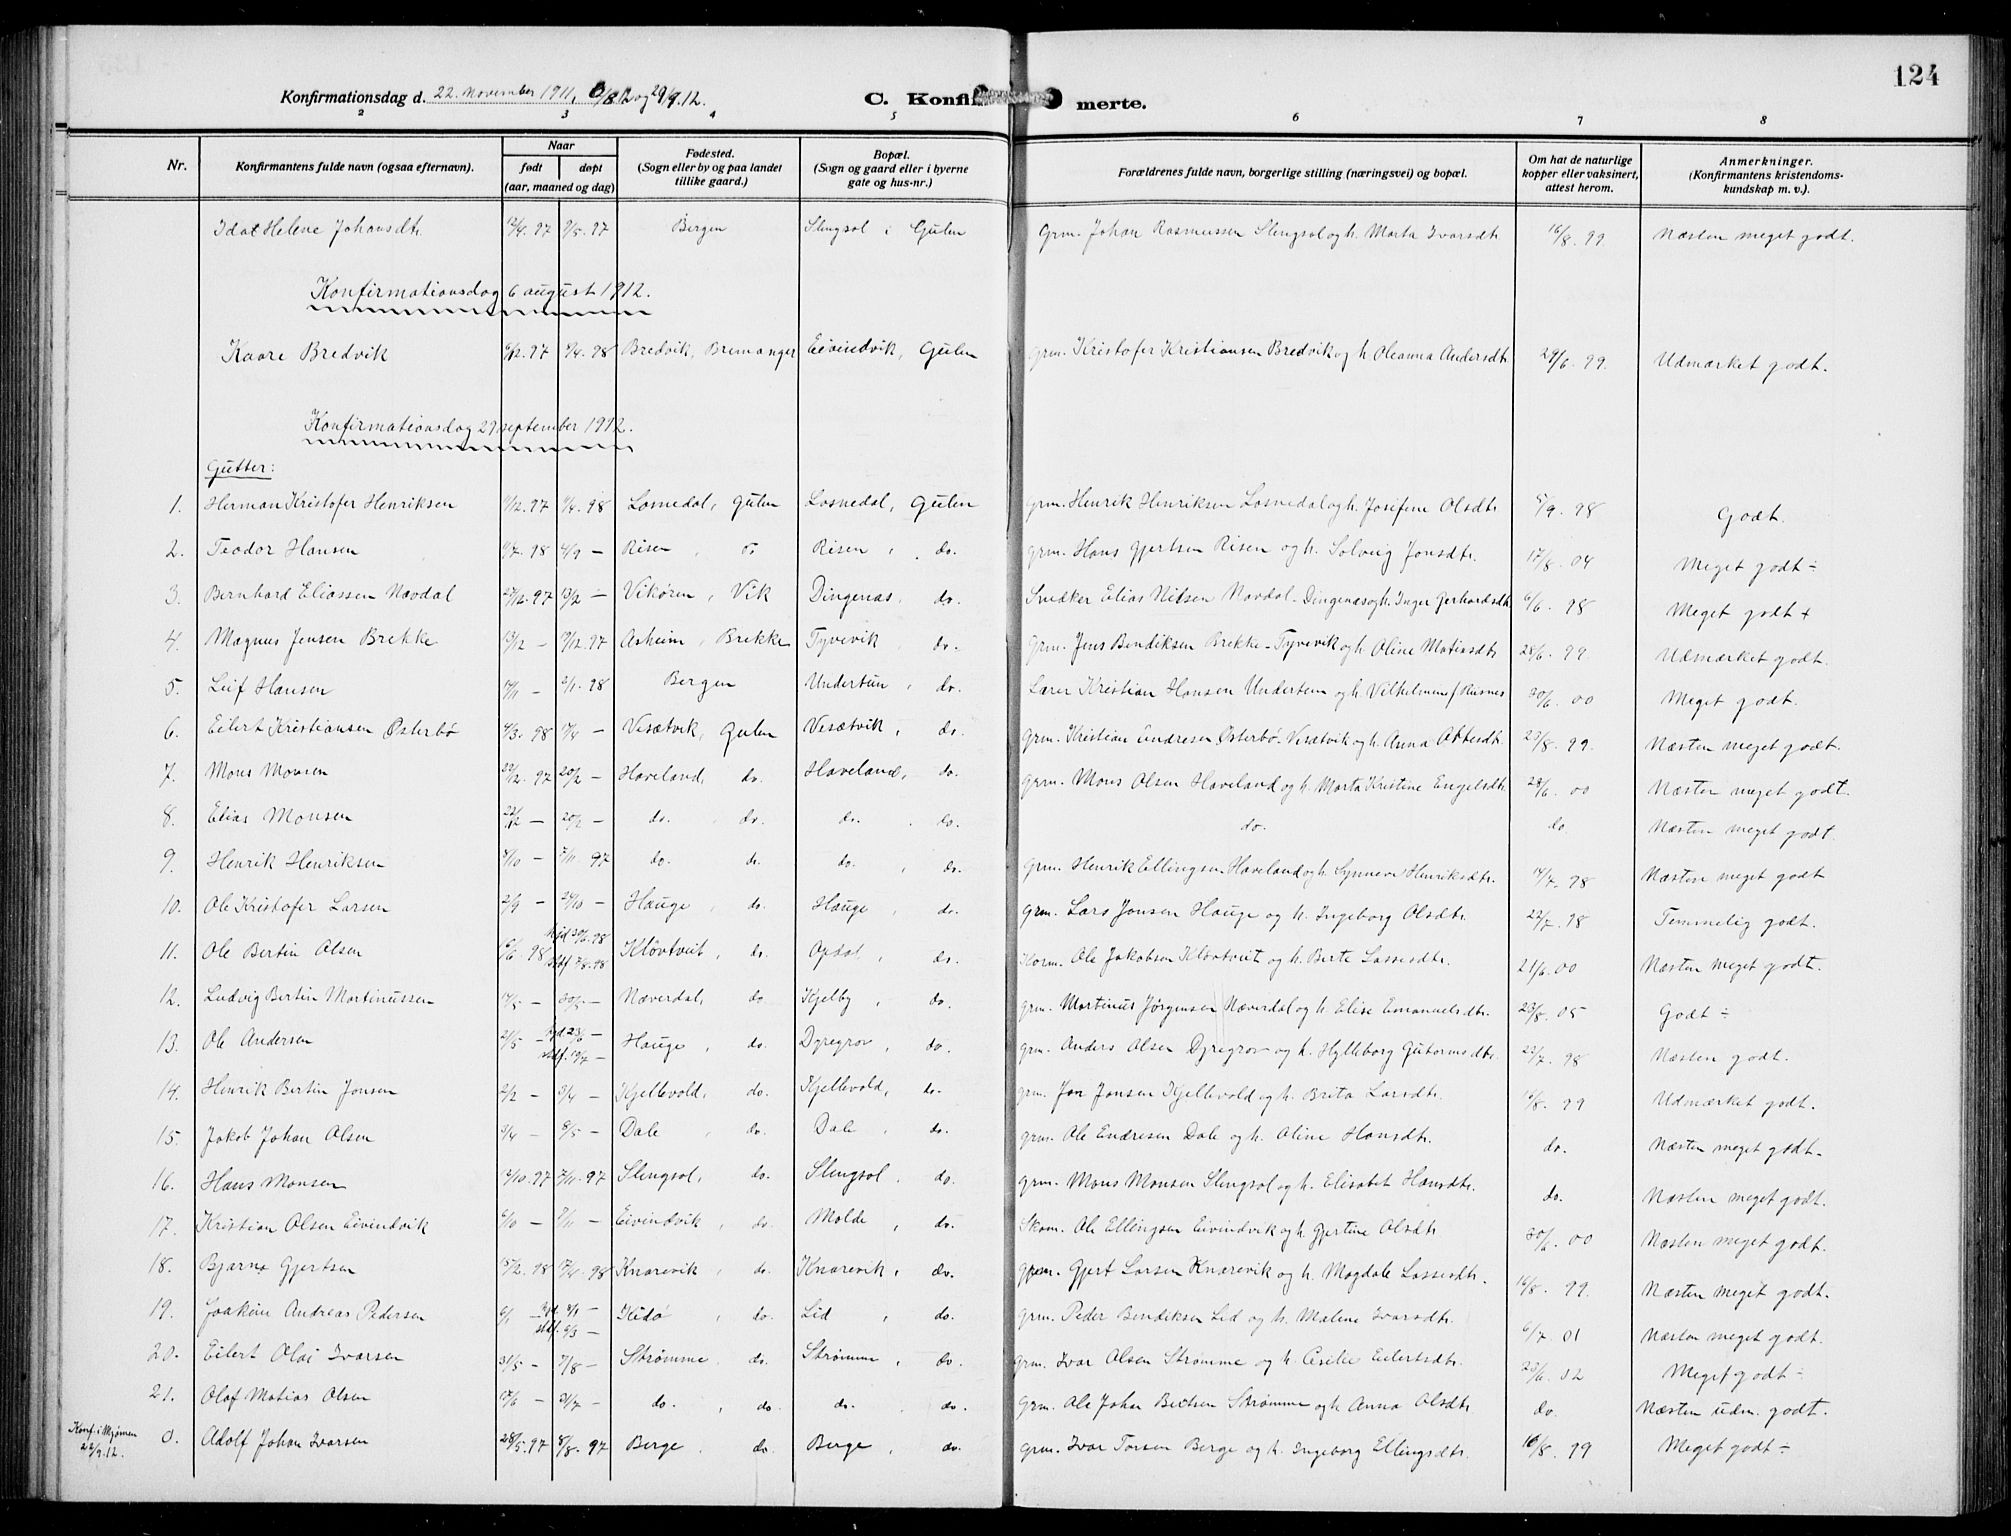 124
Konfirmationsdag d. 22. november 1911, 6/8 12 og 29/9. 12.
C. Konfirmerte.
2 3 4 5 6 7 8
Nr. Konfirmantens fulde navn (ogsaa efternavn). Naar født døpt (aar, maaned og dag) Fødested. (Sogn eller by og paa landet tillike gaard.) Bopæl. (Sogn og gaard eller i byerne gate og hus-nr.) Forældrenes fulde navn, borgerlige stilling (næringsvei) og bopæl. Om hat de naturlige kopper eller vaksinert, attest herom. Anmerkninger. (Konfirmantens kristendomskundskap m. v.).
Helene Johansdtr. 9/5. 97 Bergen Slengsol i Gulen Grm. Johan Rasmussen Slengsol og h. Marta Ivarsdtr. 16/8. 99 Næsten meget godt.
Konfirmationsdag 6 august 1912.
Kaare Bredvik 6/12. 97 9/4. 98 Bredvik, Bremanger Eivindvik, Gulen grm. Kristofer Kristiansen Bredvik og h. Oleanna Andersdtr. 29/6. 99. Udmærket godt.
Konfirmationsdag 29 september 1912.
Gutter:
1. Herman Kristofer Henriksen 9/12. 97 9/4. 98 Losnedal, Gulen Losnedal, Gulen grm. Henrik Henriksen Losnedal og h. Josefine Olsdtr. 5/9. 98 Godt.
2. Teodor Hansen 4/9 — Risen, Risen, do. grm. Hans Gjertsen Risen og h. Solveig Jonsdtr. 17/8. 04 Meget godt ÷
3. Bernhard Eliassen Navdal 27/12. 97 13/2 — Vikøren, Vik Dingenæs, do. Snedker Elias Nilsen Navdal - Dingenæs og h. Inger Gerhardsdtr. 6/6. 98 Meget godt +
4. Magnus Jensen Brekke 13/12 — 19/12. 97 Asheim, Brekke Tyvevik, do. Grm. Jens Bendiksen Brekke - Tyvevik og h. Oline Matiasdtr. 28/6. 99. Udmærket godt.
5. Leif Hansen 17/11 — 2/1. 98 Bergen Undertun, do. Lærer Kristian Hansen Undertun og h. Vilhelmine f. Risnes 30/6. 00 Meget godt.
6. Eilert Kristiansen Østerbø 4/3. 98 17/4 — Visætvik, Gulen Visætvik, do. grm. Kristian Endresen Østerbø - Visætvik og h. Anna Attesdtr. 25/8. 99. Næsten meget godt.
7. Mons Monsen 22/12. 97 20/2 — Haveland, do. Haveland, do. grm. Mons Olsen Haveland og h. Marta Kristine Engelsdtr. 28/6. 00 Næsten meget godt.
8. Elias Monsen 22/12 — 20/2 — do. do. do. do. do. do. Næsten meget godt.
9. Henrik Henriksen 8/10 — 7/11. 97 do. do. do. do. Grm. Henrik Ellingsen Haveland og h. Synneve Henriksdtr. 14/7. 98 Næsten meget godt
10. Ole Kristofer Larsen 2/9 — 24/10 — Hauge, do. Hauge, do. grm. Lars Jonsen Hauge og h. Ingeborg Olsdtr. 22/7. 98 Temmelig godt.
11. Ole Bertin Olsen 16/6. 98 hjd 30/6. 98 stdf. 7/8. 98 Kløvtveit, do. Opdal, do. Korm. Ole Jakobsen Kløvtveit og h. Berte Lassesdtr. 21/6. 00 Næsten meget godt.
12. Ludvig Bertin Martinussen 14/5 — 30/5 — Næverdal, do. Kjelby, do. grm. Martinus Jørgensen Næverdal og h. Elise Emanuelsdtr. 23/8. 05 Godt ÷
13. Ole Andersen 21/5 — hjd 23/6 — stdf. 17/7 — Hauge, do. Dyregrov, do. grm. Anders Olsen Dyregrov og h. Hylleborg Gutormsdtr. 22/7. 98 Næsten godt.
14. Henrik Bertin Jonsen 2/2 — 3/4 — Kjellevold, do. Kjellevold, do. grm. Jon Jonsen Kjellevold og h. Brita Larsdtr. 16/8. 99 Udmærket godt.
15. Jakob Johan Olsen 3/4 — 8/5 — Dale, do. Dale, do. grm. Ole Endresen Dale og h. Oline Hansdtr. do. Næsten meget godt.
16. Hans Monsen 13/10. 97 7/11. 97 Slengsol, do. Slengsol, do. grm. Mons Monsen Slengsol og h. Elisabet Hansdtr. do. Næsten meget godt.
17. Kristian Olsen Eivindvik 6/10 — 7/11 — Eivindvik, do. Molde, do. Skom. Ole Ellingsen Eivindvik og h. Gjertine Olsdtr. 30/6. 00 Næsten meget godt.
18. Bjarne Gjertsen 15/2. 98 17/4. 98 Knarevik, do. Knarevik, do. grm. Gjert Larsen Knarevik og h. Magdale Lassesdtr. 16/8. 99. Næsten meget godt.
19. Joakim Andreas Pedersen 6/1 — hjd. 9/1 — stdf. 6/3 — Kidø, do. Lid, do. grm. Peder Bendiksen Lid og h. Malene Ivarsdtr. 6/7 01 Næsten meget godt.
20. Eilert Olai Ivarsen 31/5 — 7/8 — Strømme, do. Strømme, do. grm. Ivar Olsen Strømme og h. Cecilie Eilertsdtr. 25/6. 02 Meget godt ÷
21. Olaf Matias Olsen 17/6 — 31/7 — do., do. do. do. grm. Ole Johan Olsen Strømme og h. Anna Olsdtr. do. Næsten udm. godt.
Konf. i Mjømen 22/9. 12. 0. Adolf Johan Ivarsen 28/5. 97 8/8. 97 Berge, do. Berge, do. grm. Ivar Torsen Berge og h. Ingeborg Ellingsdtr. 16/8. 99 Meget godt ÷